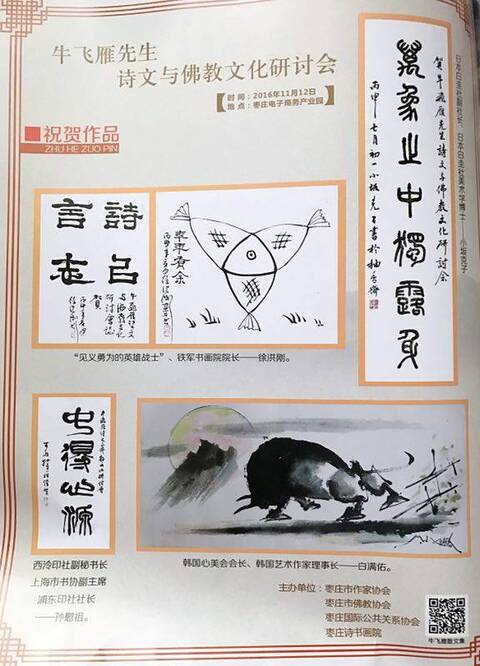 牛飞雁先生
诗文与佛教文化研讨会
【时间：2016年11月12日
地点：枣庄电子商务产业园】
祝贺作品
ZHU HE ZUO PIN
萬象之中獨露身
賀牛飛雁先生詩文与佛教文化研討會
丙申七月初一小坂克子書於
日本白圭社副社长、日本白圭社美术学博士——小坂克子
詩言志
枣枣有余
“见义勇为的英雄战士”、铁军书画院院长——徐洪刚。
中得心源
西泠印社副秘书长
上海市书协副主席
浦东印社社长
——孙慰祖。
韩国心美会会长、韩国艺术作家理事长——白满佑。
主办单位：枣庄市作家协会
枣庄市佛教协会
枣庄国际公共关系协会
枣庄诗书画院
牛飞雁散文集